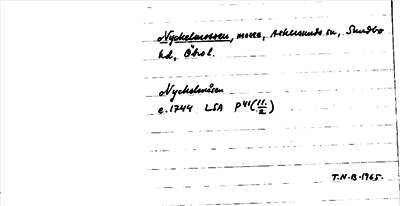 Nyckelmossen, mosse, Askersunds sn, Sundbo
hd, Ögötl.
Nyckelmåsen
c. 1744 LSA P41(11/2)
T.N.B. 1965.